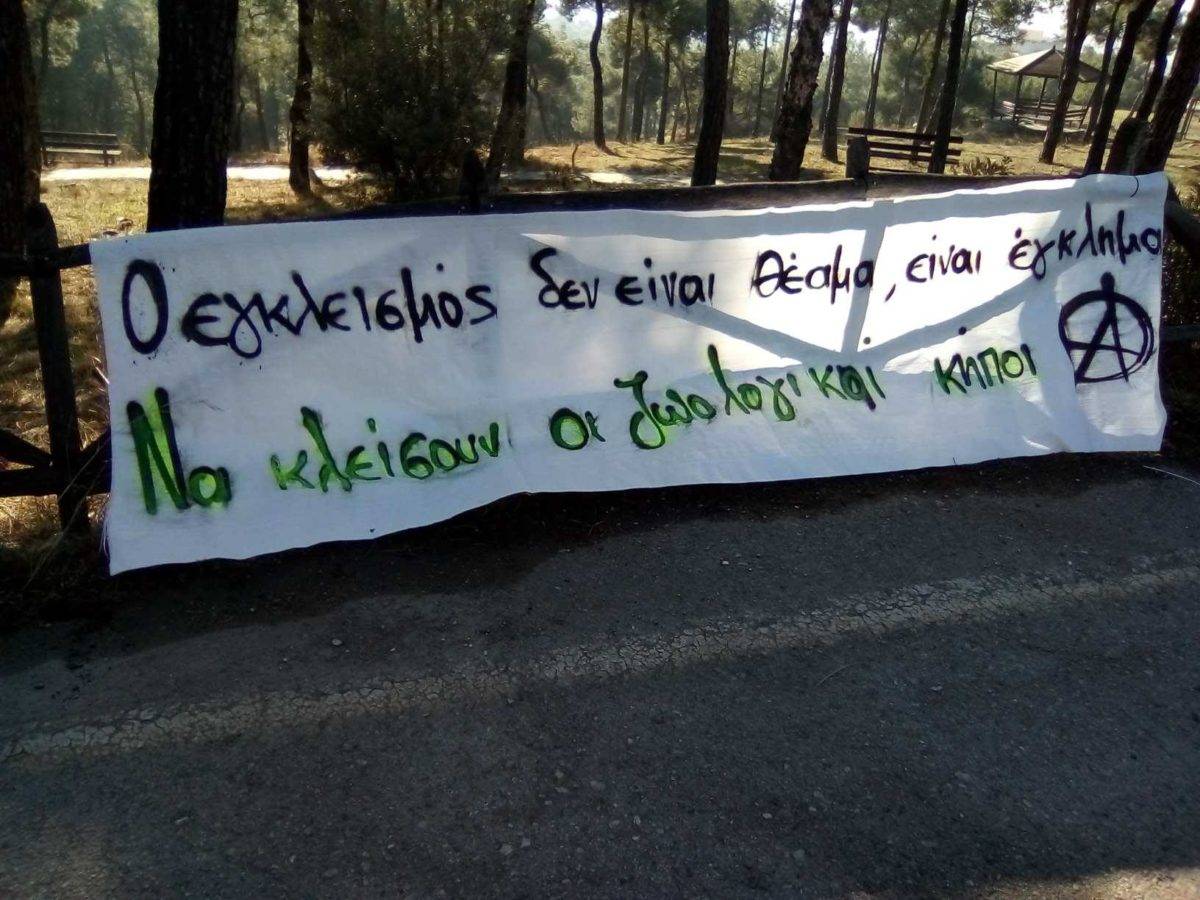 Ο εγκλεισμός δεν είναι θέαμα, είναι έγκλημα
Να κλείσουν οι ζωολογικοί κήποι Ⓐ